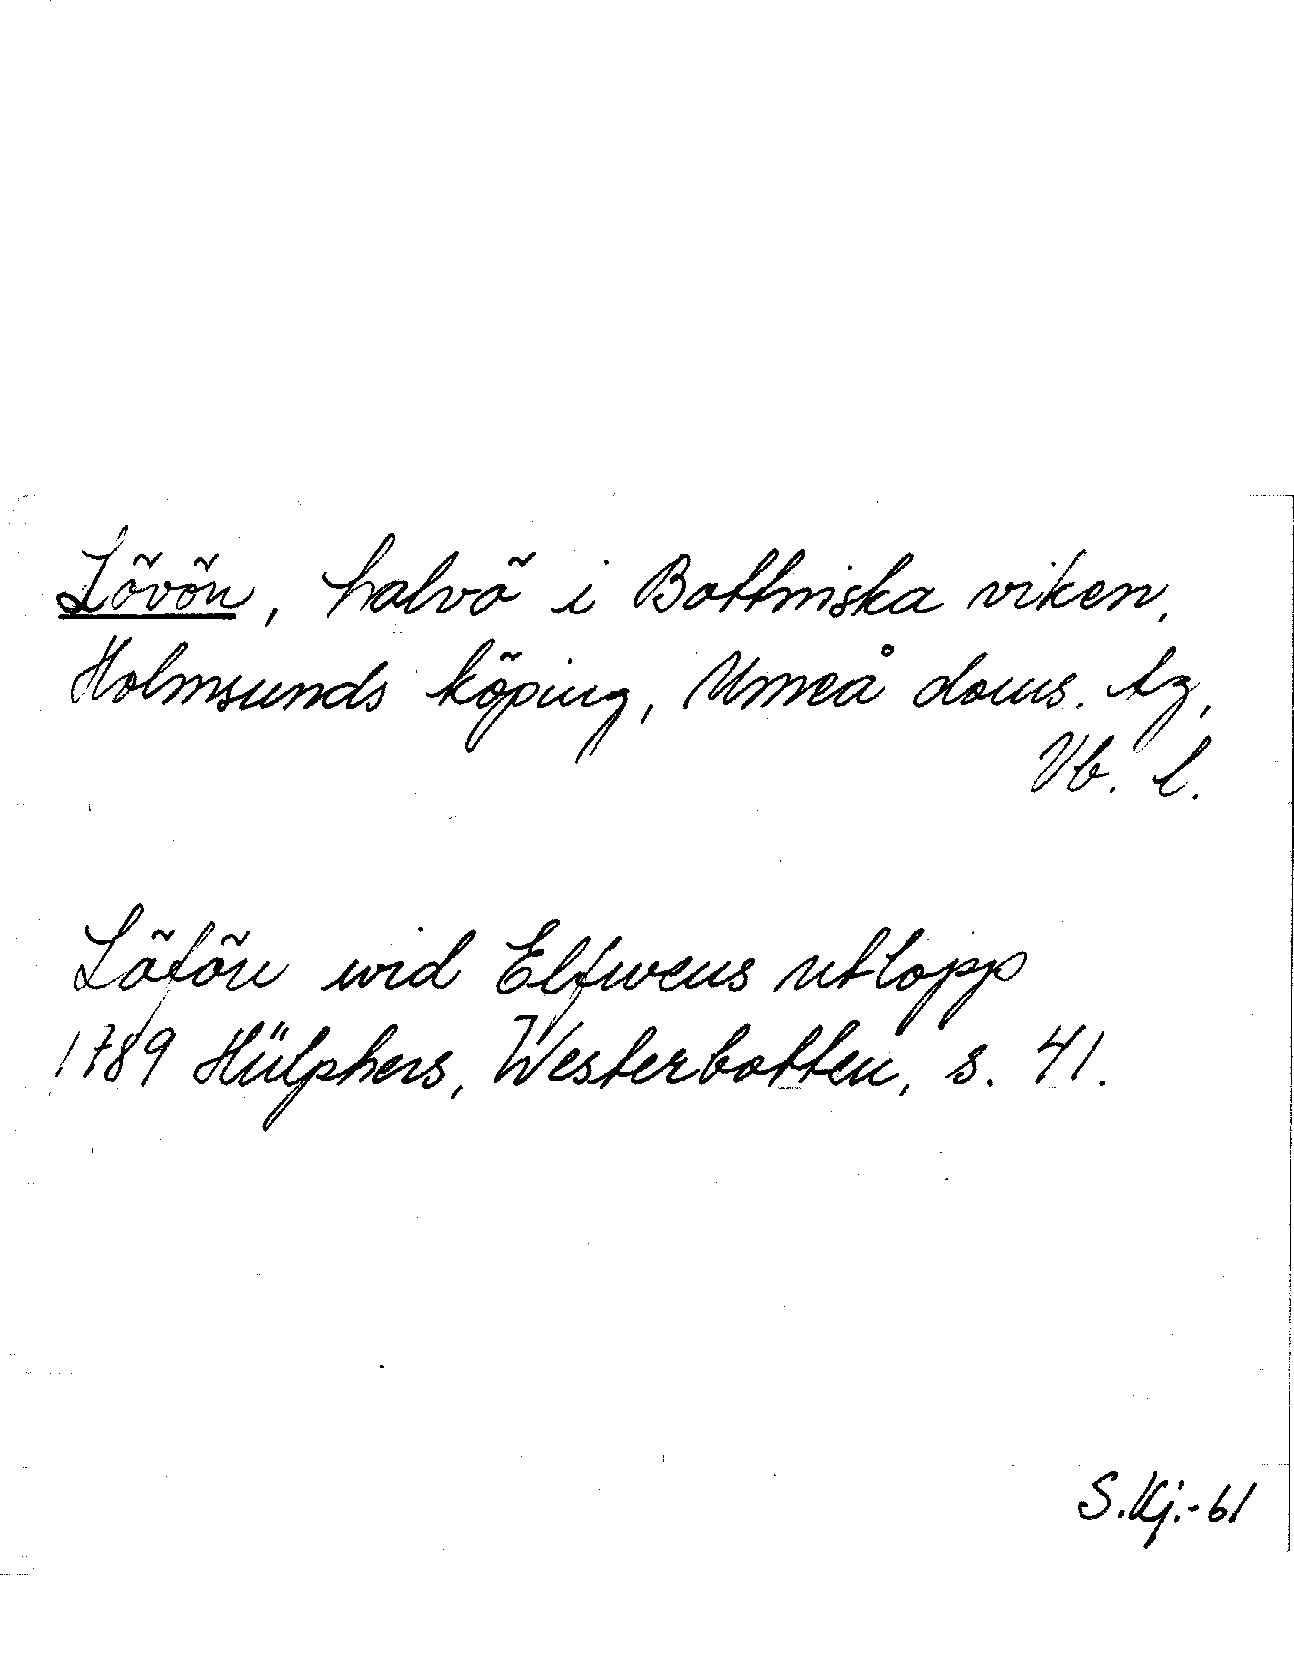 Lövön, halvö i Bottniska viken,
Holmsunds köping, Umeå doms. tg,
Vb. l.
Löfön wid Elfwens utlopp
1789 Hülphers, Westerbotten, s. 41.
S. Kj.-61